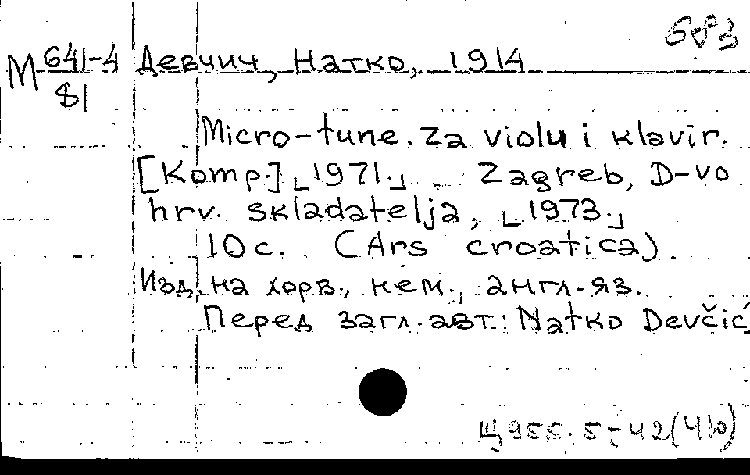 683
М 641-4 / 81 Девчич, Натко, 1914
Micro-tune. Za violu i klavir.
[Komp.] ⌞1971.⌟ Zagreb, D-vo
hrv. skladatelja, ⌞1973.⌟
10 с. (Ars croatica)
Изд. на хорв., нем., англ. яз.
Перед загл. авт.: Natko Devčić
Щ955.5-42(4Ю)